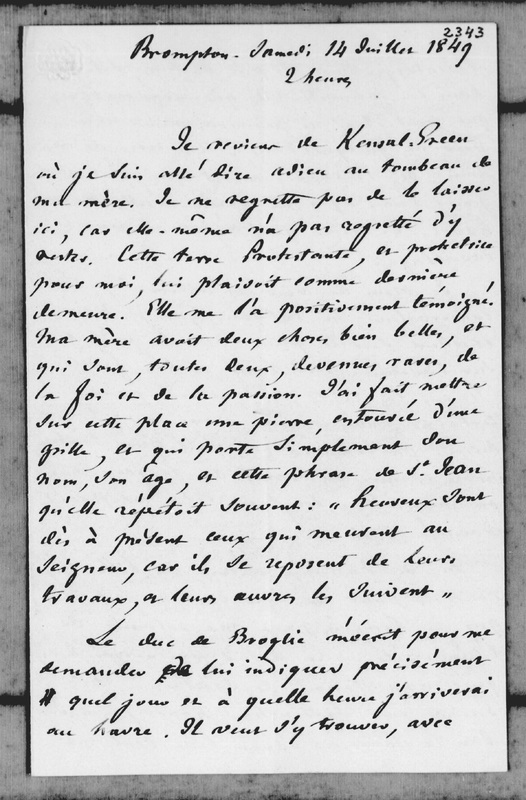 2343
Brompton - Samedi 14 Juillet 1849
2 heures
Je reviens de Kensal-Green
où je suis allé dire adieu au tombeau de
ma mère. Je ne regrette pas de la laisser
ici, car elle-même n'a pas regretté d'y
rester. Cette terre Protestante, et protectrice
pour moi, lui plaisoit comme dernière
demeure. Elle me l'a positivement témoigné.
Ma mère avoit deux choses bien belles, et
qui sont, toutes deux, devenues rares, de
la foi et de la passion. J'ai fait mettre
sur cette place une pierre, entourée d'une
grille, et qui porte simplement son
nom, son âge, et cette phrase de St Jean
qu'elle répétoit souvent : " heureux sont
dès à présent ceux qui meurent au
Seigneur, car ils se reposent de leurs
travaux, et leurs œuvres les suivent "
Le duc de Broglie m'écrit pour me
demander de lui indiquer précisément
quel jour et à quelle heure j'arriverai
au havre. Il veut s'y trouver, avec